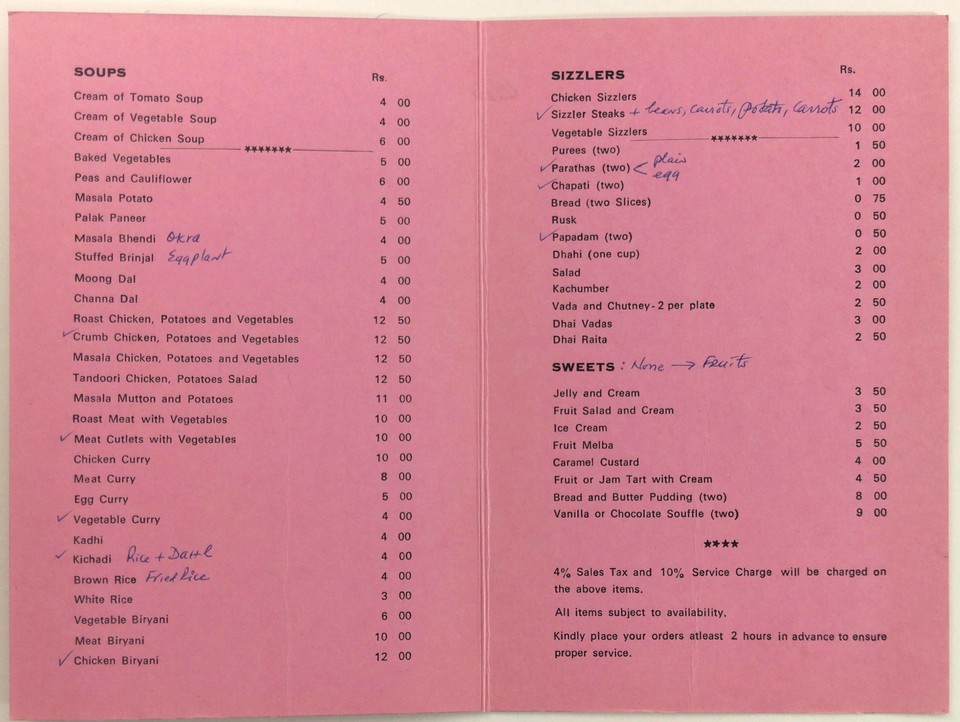 SOUPS Rs.
Cream of Tomato Soup 4 00
Cream of Vegetable Soup 4 00
Cream of Chicken Soup 6 00
*******
Baked Vegetables 5 00
Peas and Cauliflower 6 00
Masala Potato 4 50
Palak Paneer 5 00
Masala Bhendi Okra 4 00
Stuffed Brinjal Eggplant 5 00
Moong Dal 4 00
Channa Dal 4 00
Roast Chicken, Potatoes and Vegetables 12 50
✓ Crumb Chicken, Potatoes and Vegetables 12 50
Masala Chicken, Potatoes and Vegetables 12 50
Tandoori Chicken, Potatoes Salad 12 50
Masala Mutton and Potatoes 11 00
Roast Meat with Vegetables 10 00
✓ Meat Cutlets with Vegetables 10 00
Chicken Curry 10 00
Meat Curry 8 00
Egg Curry 5 00
✓ Vegetable Curry 4 00
Kadhi 4 00
✓ Kichadi Rice + Dahl 4 00
Brown Rice Fried Rice 4 00
White Rice 3 00
Vegetable Biryani 6 00
Meat Biryani 10 00
✓ Chicken Biryani 12 00
SIZZLERS Rs.
Chicken Sizzlers 14 00
✓ Sizzler Steaks + beans, carrots, potato, carrots 12 00
Vegetable Sizzlers 10 00
*******
Purees (two) 1 50
✓ Parathas (two) < plain egg 2 00
✓ Chapati (two) 1 00
Bread (two Slices) 0 75
Rusk 0 50
✓ Papadam (two) 0 50
Dhahi (one cup) 2 00
Salad 3 00
Kachumber 2 00
Vada and Chutney-2 per plate 2 50
Dhai Vadas 3 00
Dhai Raita 2 50
SWEETS : None → Fruits
Jelly and Cream 3 50
Fruit Salad and Cream 3 50
Ice Cream 2 50
Fruit Melba 5 50
Caramel Custard 4 00
Fruit or Jam Tart with Cream 4 50
Bread and Butter Pudding (two) 8 00
Vanilla or Chocolate Souffle (two) 9 00
****
4% Sales Tax and 10% Service Charge will be charged on
the above items.
All items subject to availability.
Kindly place your orders atleast 2 hours in advance to ensure
proper service.